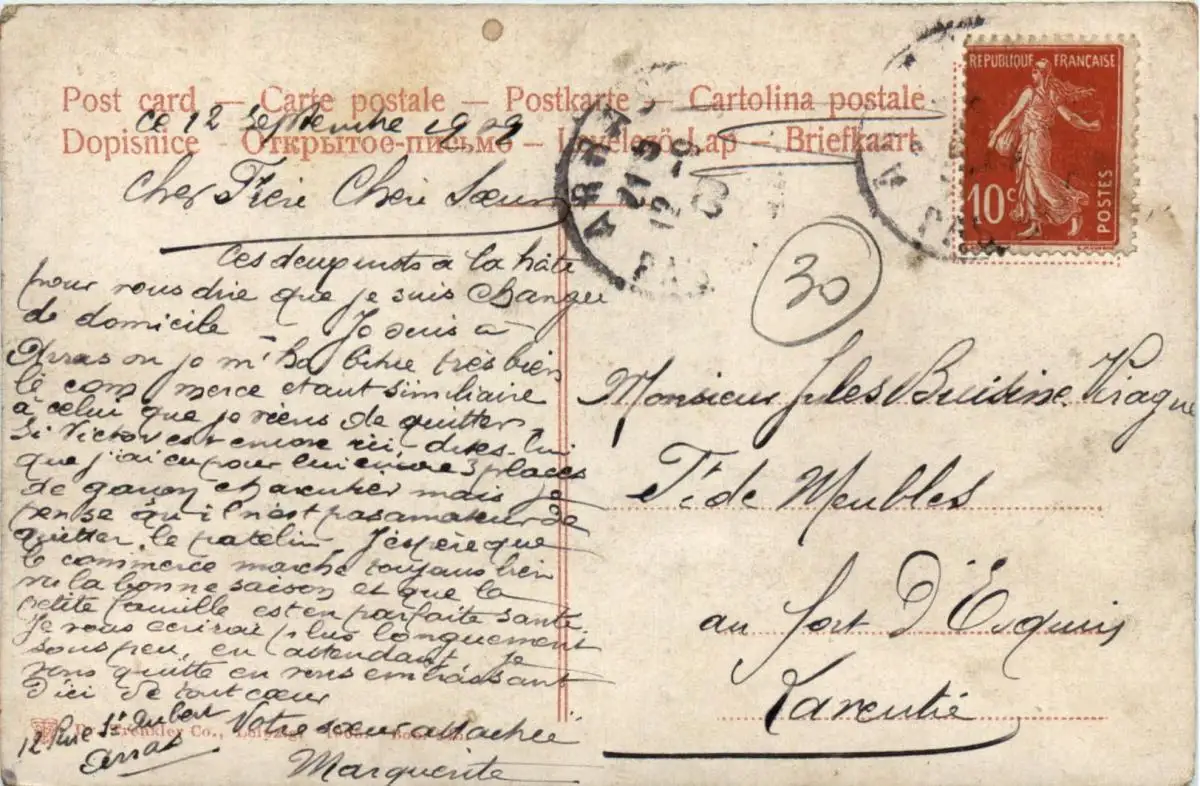 Post card — Carte postale — Postkarte — Cartolina postale
Dopisnice — Открытое-письмо — Levelező-Lap — Briefkaart
ce 12 Septembre 1909
Cher Frère Chère Sœur
Ces deux mots à la hâte
pour vous dire que je suis changée
de domicile Je suis à
Arras ou je m'habitue très bien
le commerce etant similiaire
à celui que je viens de quitter
Si Victor est encore ici dites-lui
que j'ai eu pour lui encore 3 places
de garçon charcutier mais je
pense qu'il n'est pas amateur de
quitter le patelin J'espère que
le commerce marche toujours bien
vu la bonne saison et que la
petite famille est en parfaite santé
Je vous ecrirai plus longuement
sous peu, en attendant je
vous quitte en vous embrassant
d'ici de tout cœur
Votre sœur attachée
Marguerite
12 Rue St Aubert
Arras
Co., Leipzig
REPUBLIQUE FRANÇAISE
10c
POSTES
ARRAS
12 - 9
30
Monsieur Jules Buisine
Ft de Meubles
au fort D'Esquin